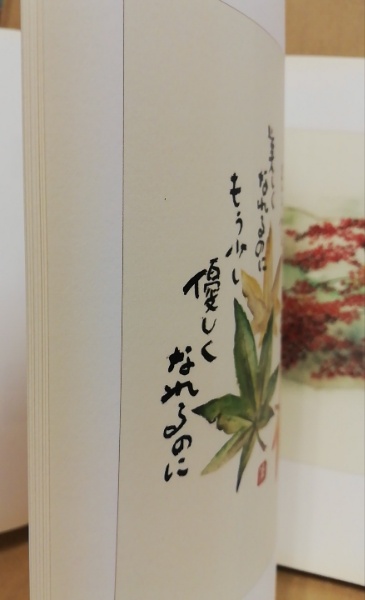 なれるのに
もう少し
優しく
なれるのに